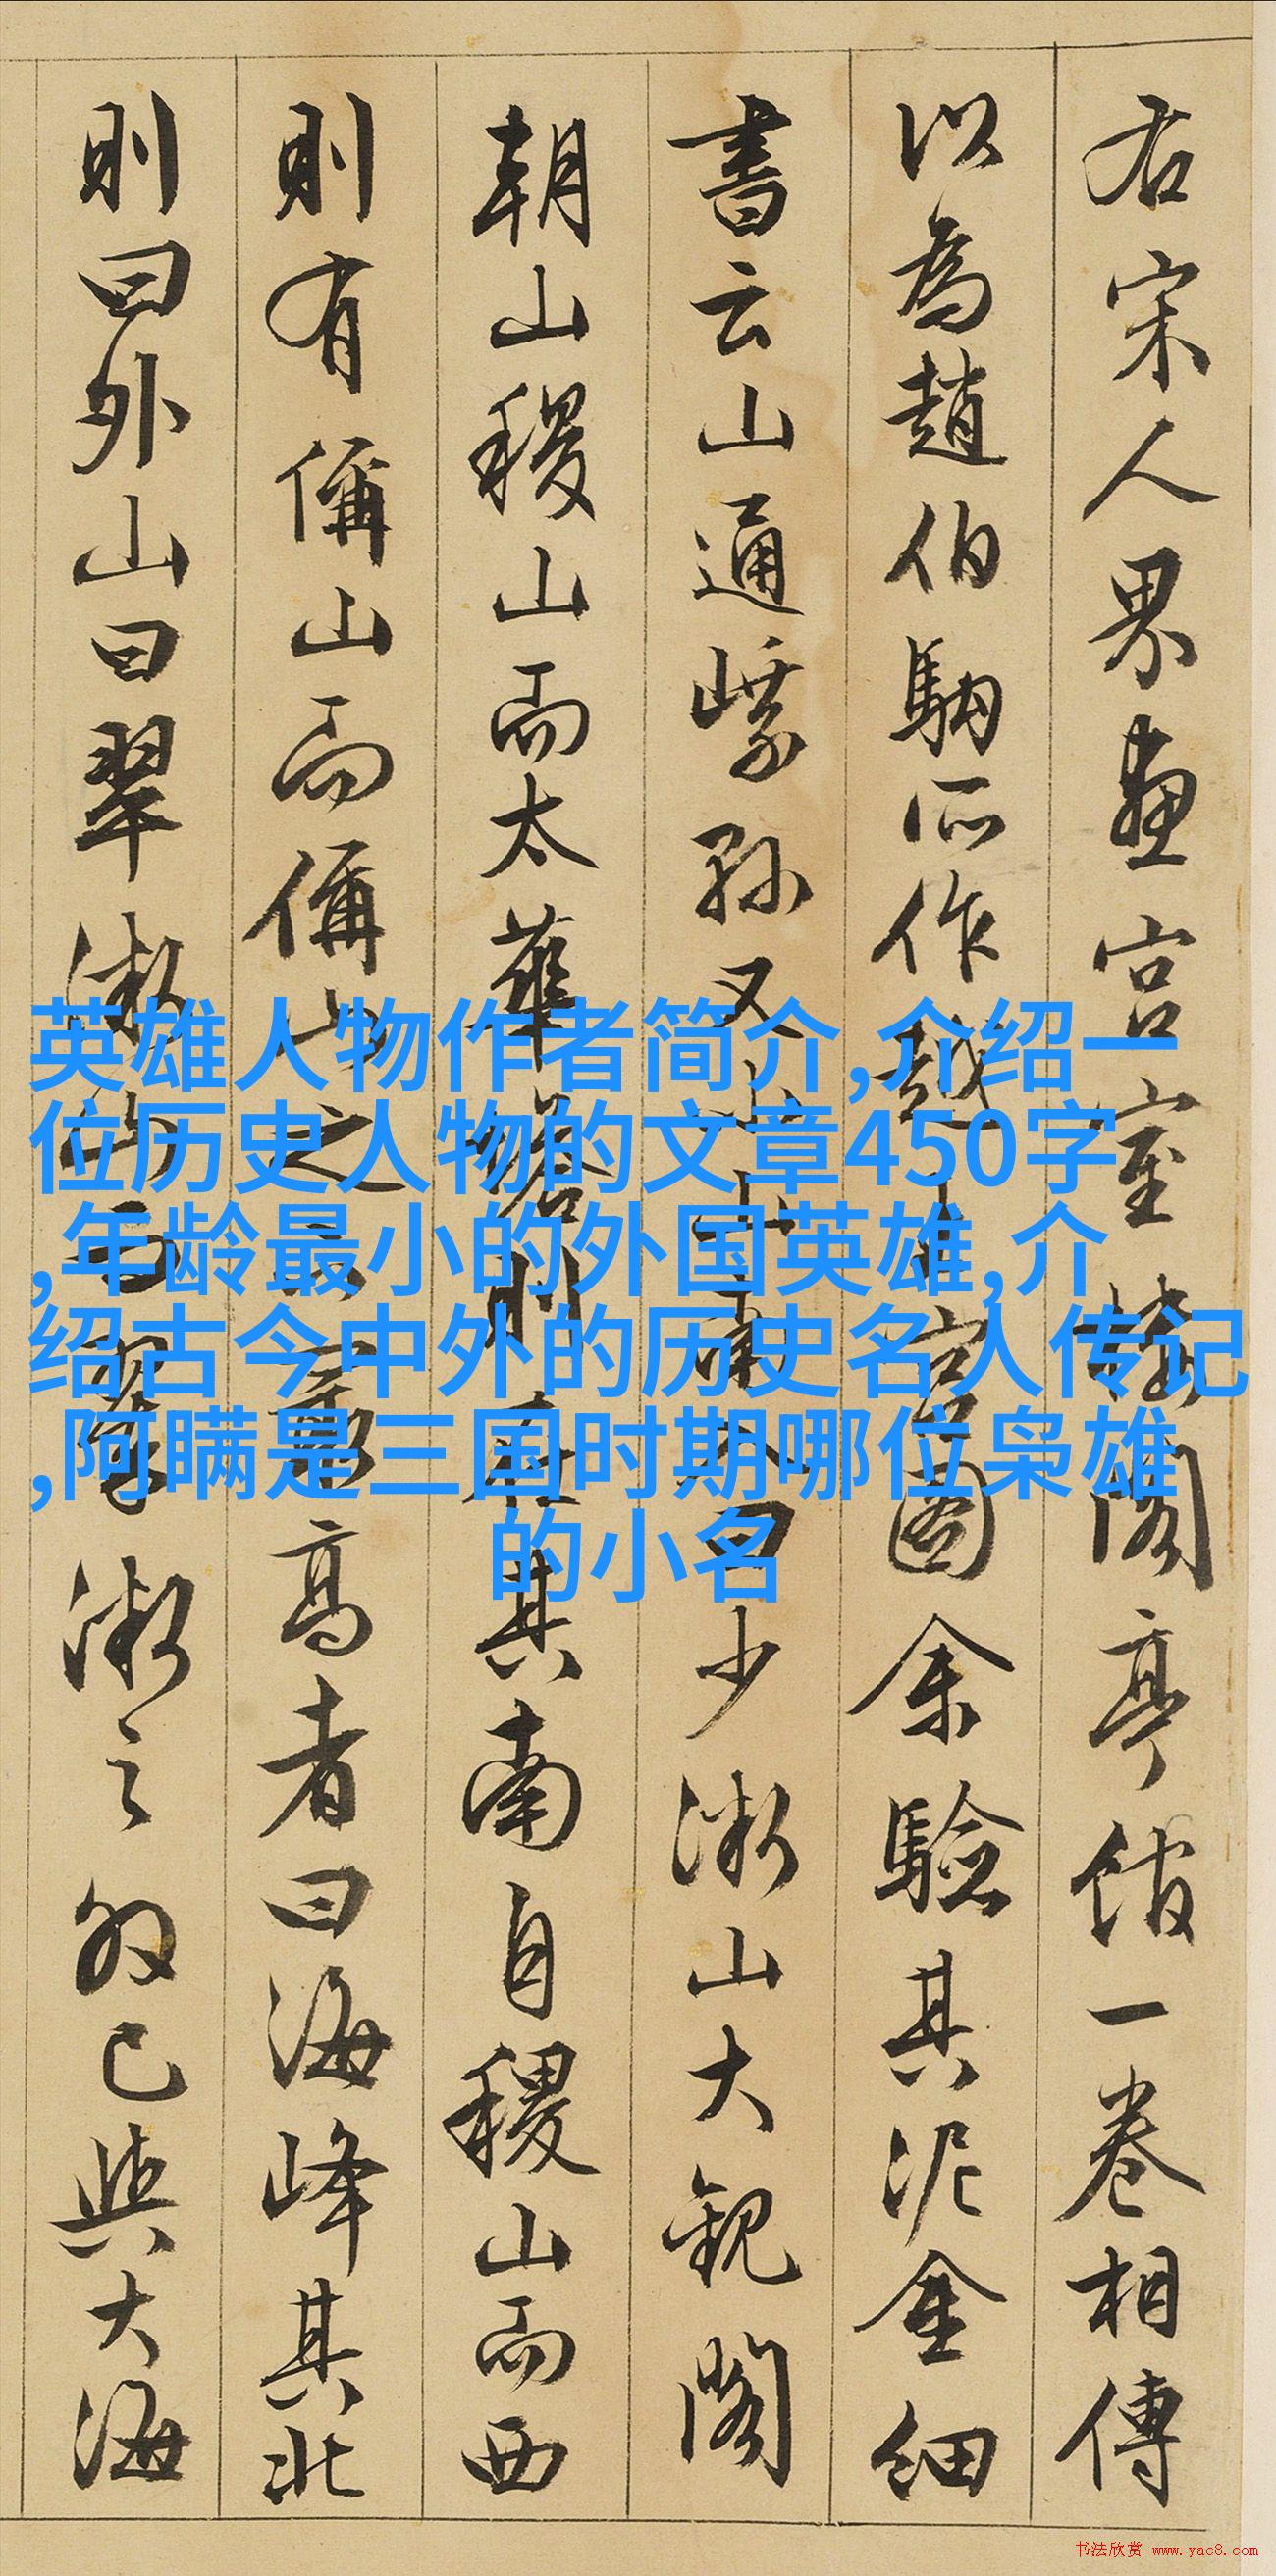 右宋人界畫宮室樓閣亭館一卷相傳
以為趙伯駒所作越王宮圖余驗其泥金細
書云山通嵊孫又
少微山大觀閣
朝山稷山而太華
則
其南自稷山而西
則有偁山而偁山之
最高者曰海峰其北
則曰外山曰翠微
翠微之外已與大海
英雄人物作者简介,介绍一
位历史人物的文章450字
,年龄最小的外国英雄,介
绍古今中外的历史名人传记
,阿瞒是三国时期哪位枭雄
的小名
书法欣赏 www.yac8.com